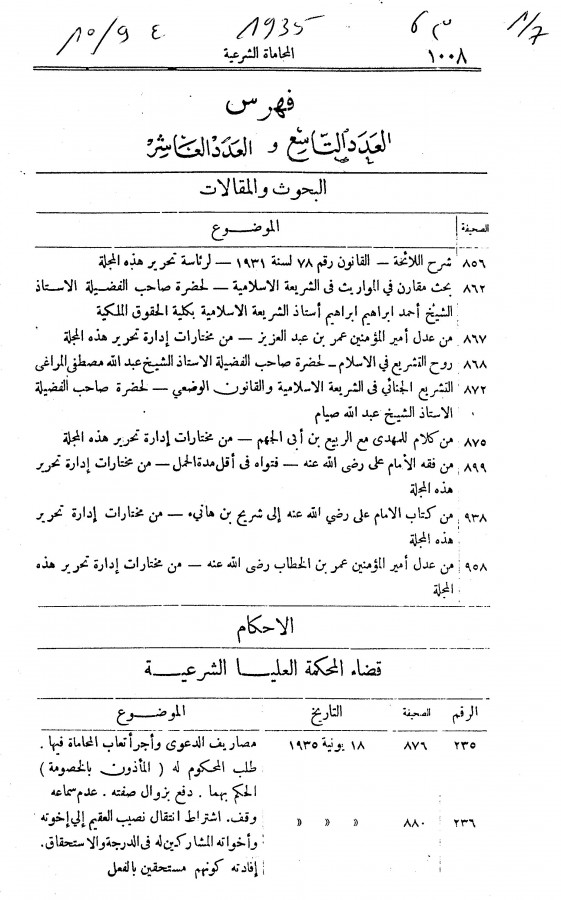 ١٠/٩ ع 1935 س ٦ ١/٧
المحاماة الشرعية ١٠٠٨
فهرس
العدد التاسع و العدد العاشر
البحوث والمقالات
الصحيفة الموضوع
٨٥٦ شرح اللائحة — القانون رقم ٧٨ لسنة ١٩٣١ — لرئاسة تحرير هذه المجلة
٨٦٢ بحث مقارن في المواريث فى الشريعة الاسلامية — لحضرة صاحب الفضيلة الاستاذ
الشيخ أحمد ابراهيم ابراهيم أستاذ الشريعة الاسلامية بكلية الحقوق الملكية
٨٦٧ من عدل أمير المؤمنين عمر بن عبد العزيز — من مختارات إدارة تحرير هذه المجلة
٨٦٨ روح التشريع في الاسلام ـ لحضرة صاحب الفضيلة الاستاذ الشيخ عبد الله مصطفى المراغى
٨٧٢ التشريع الجنائي فى الشريعة الاسلامية والقانون الوضعي — لحضرة صاحب الفضيلة
الاستاذ الشيخ عبد الله صيام
٨٧٥ من كلام للمهدى مع الربيع بن أبى الجهم — من مختارات إدارة تحرير هذه المجلة
٨٩٩ من فقه الأمام على رضى الله عنه — فتواه فى أقل مدة الحمل — من مختارات إدارة تحرير
هذه المجلة
٩٣٨ من كتاب الامام على رضي الله عنه إلى شريح بن هانيء — من مختارات إدارة تحرير
هذه المجلة
٩٥٨ من عدل أمير المؤمنين عمر بن الخطاب رضى الله عنه — من مختارات إدارة تحرير هذه
المجلة
الاحكام
قضاء المحكمة العليا الشرعية
الرقم الصحيفة التاريخ الموضوع
٢٣٥ ٨٧٦ ١٨ يونية ١٩٣٥ مصاريف الدعوى وأجر أتعاب المحاماة فيها .
طلب المحكوم له ( المأذون بالخصومة )
الحكم بهما . دفع بزوال صفته . عدم سماعه
٢٣٦ ٨٨٠ » » » وقف . اشتراط انتقال نصيب العقيم إلى إخوته
وأخواته المشاركين له فى الدرجة والاستحقاق .
إفادته كونهم مستحقين بالفعل